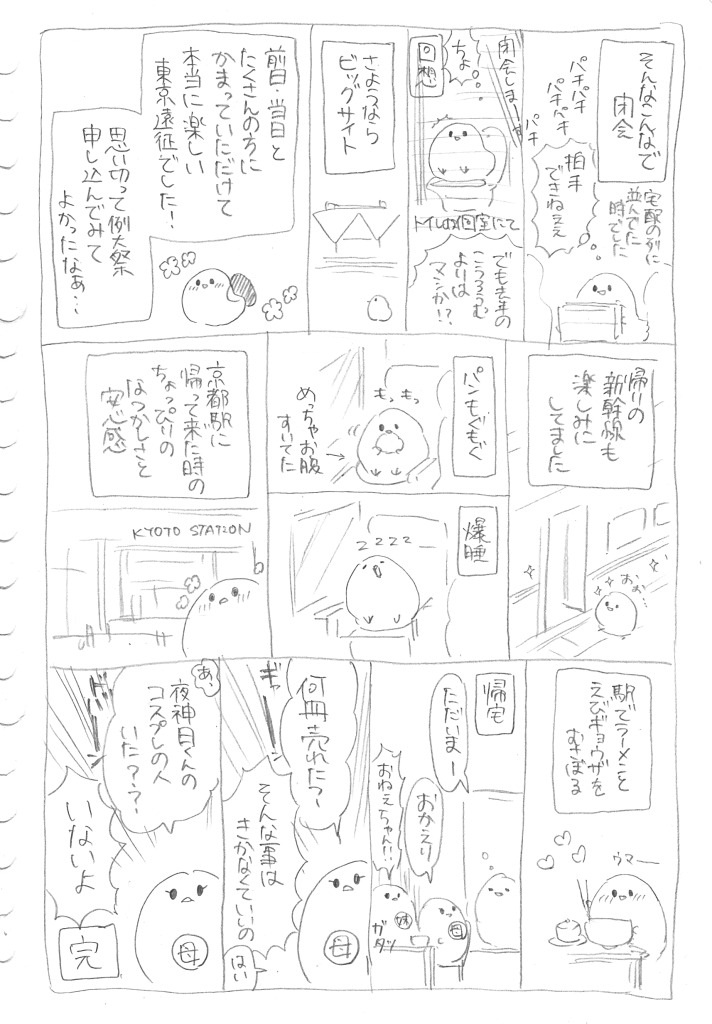 そんなこんなで
閉会
パチパチ
パチパチ
パチ
拍手
できねぇぇ
宅配の列に
並んでた
時でした
閉会しまーす
ちょ
回想
トイレの個室にて
でも去年の
こうろうむ
よりは
マシか!?
さようなら
ビッグサイト
前日・当日と
たくさんの方に
かまっていただけて
本当に楽しい
東京遠征でした!
思い切って例大祭
申し込んでみて
よかったなぁ…
帰りの
新幹線も
楽しみに
してました
おぉ…
パンもぐもぐ
もっもっ
めっちゃお腹
すいてた
爆睡
zzzz
京都駅に
帰って来た時の
ちょっぴりの
なつかしさと
安心感
KYOTO STATION
駅でラーメンと
えびギョウザを
むさぼる
ウマー
帰宅
ただいまー
おかえり
おねぇちゃん!!
妹
母
ガタッ
何冊売れた?
ギッ
そんな事は
きかなくていいの
はい
母
あ、
夜神月くんの
コスプレの人
いた??
いないよ
母
完